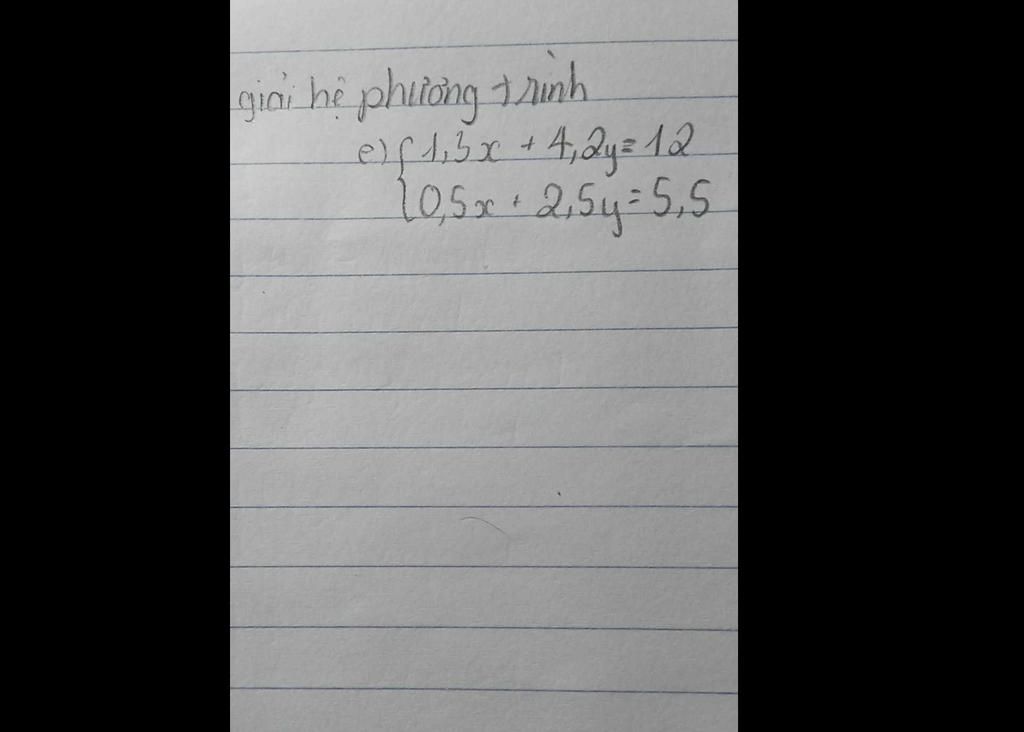 giải hệ phương trình
e) { 1,3x + 4,2y = 12
{ 0,5x + 2,5y = 5,5